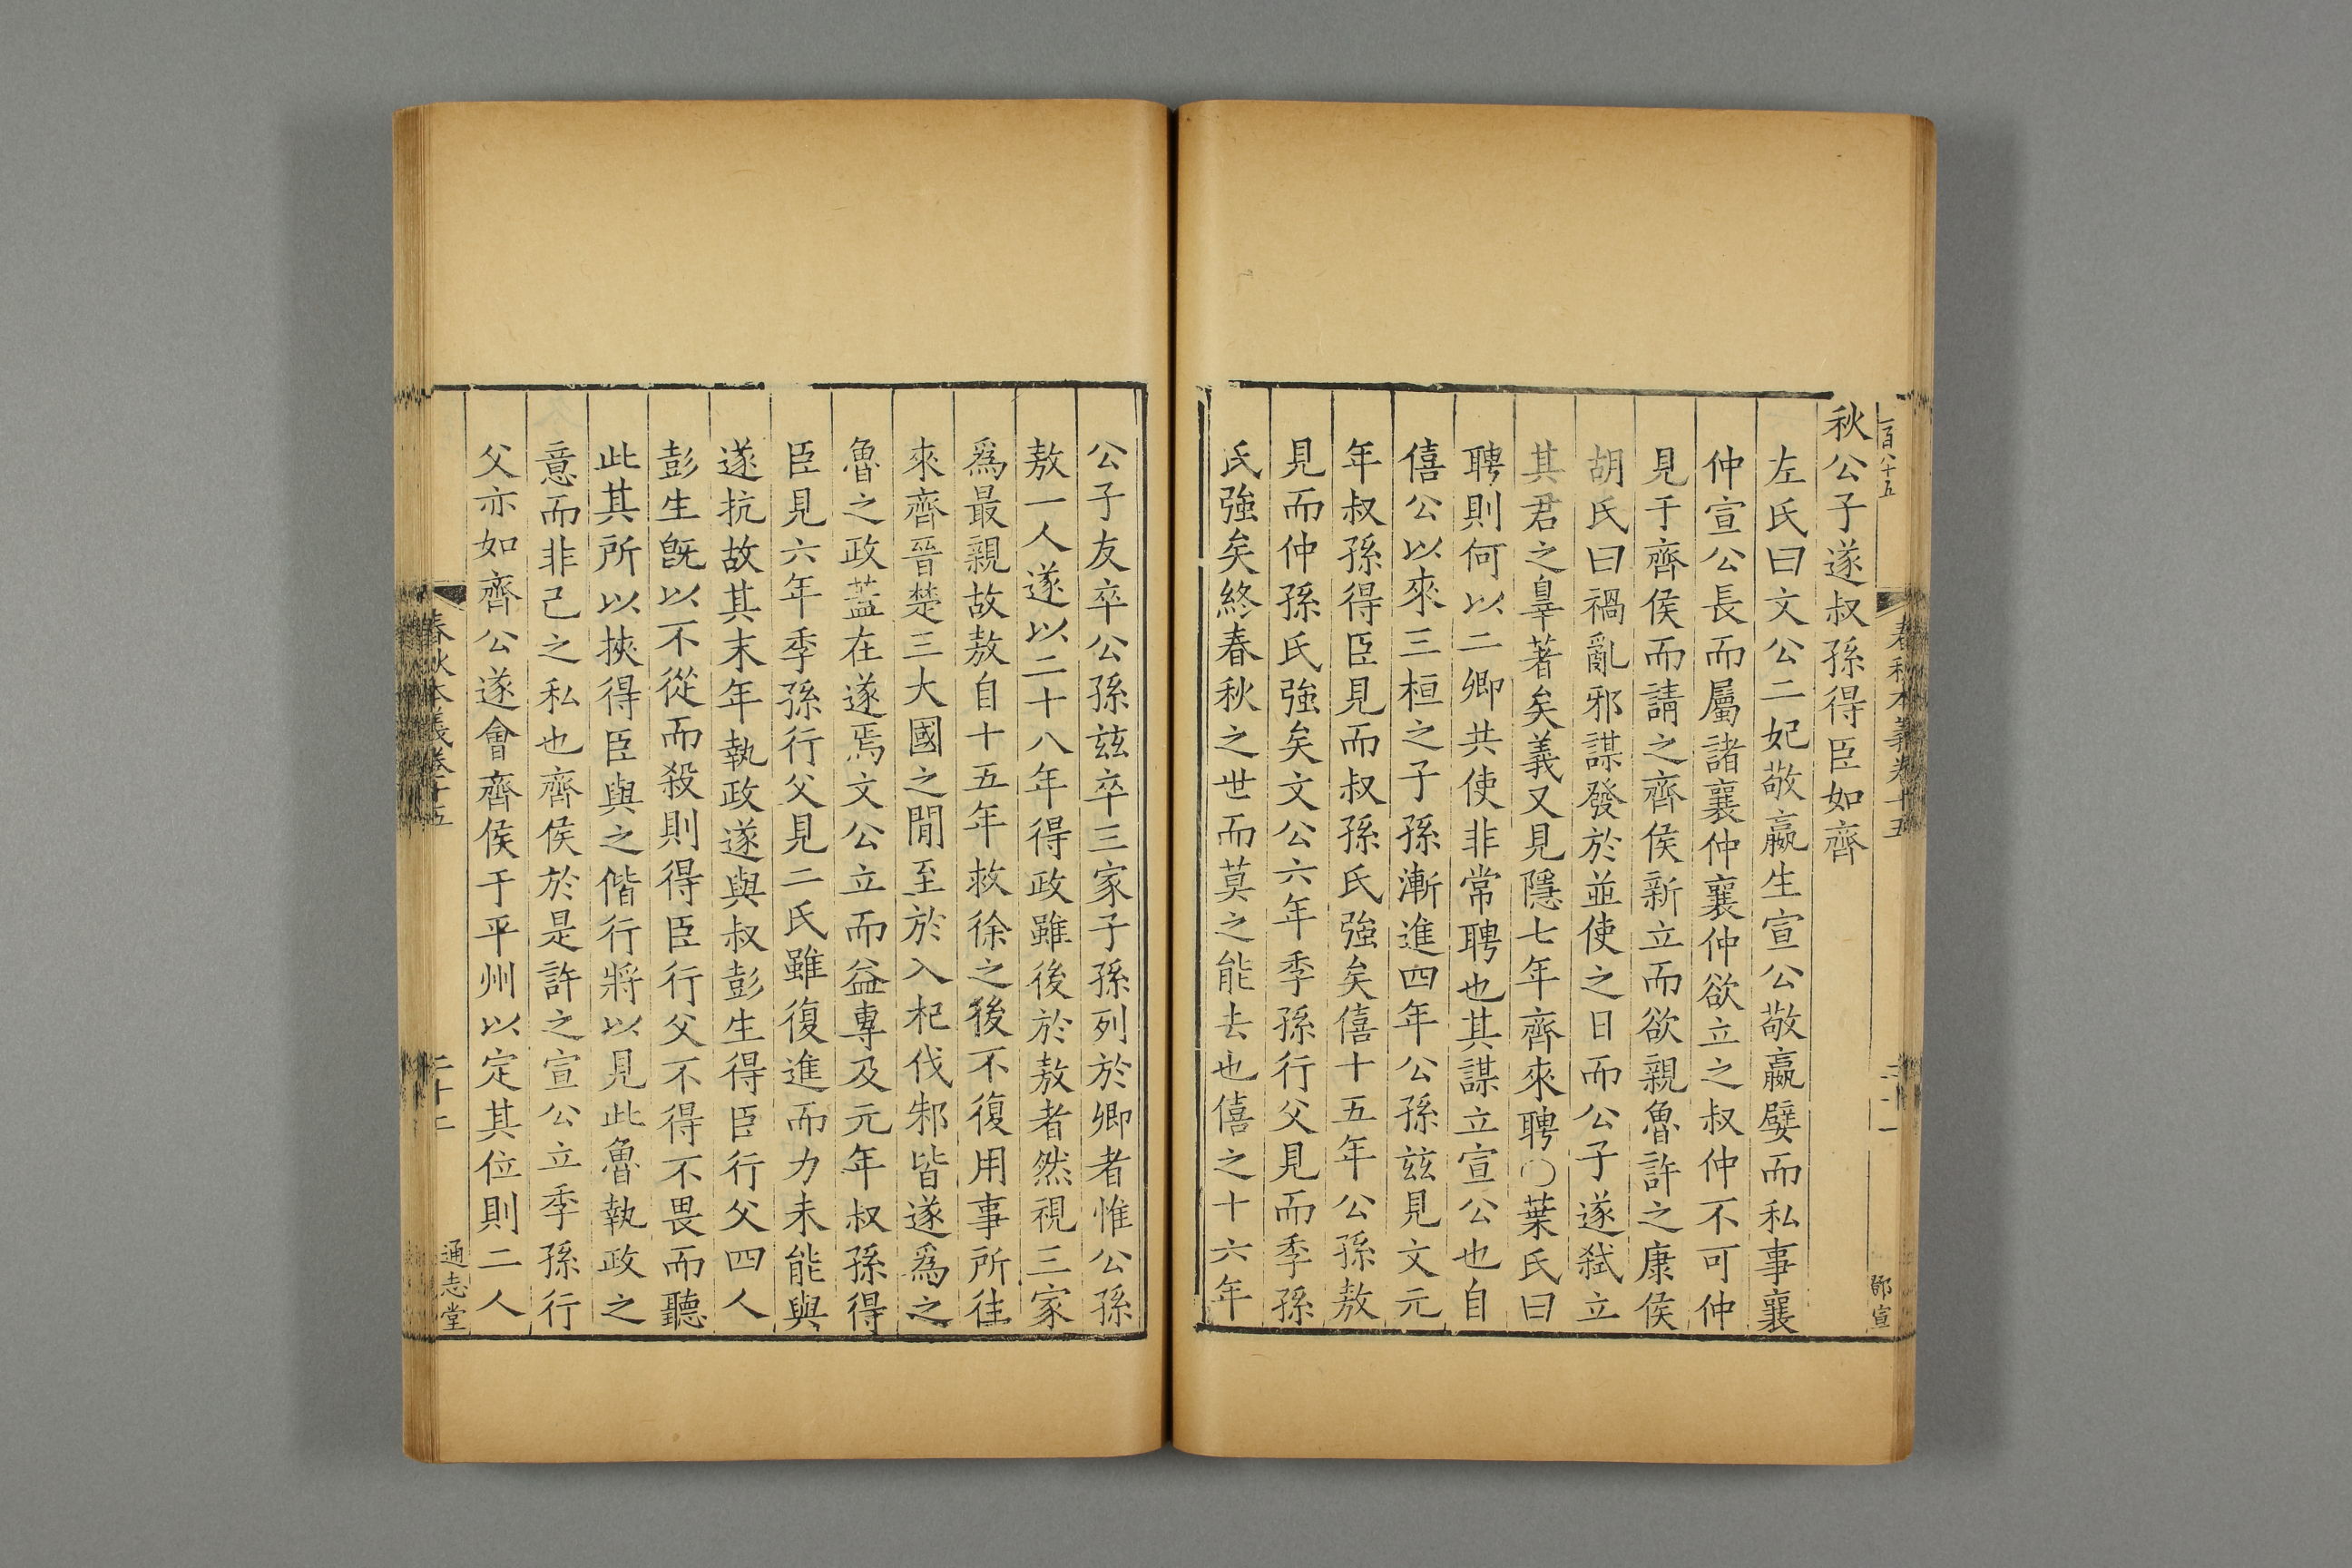 百八十五
春秋本義卷十五
秋公子遂叔孫得臣如齊
左氏曰文公二妃敬嬴生宣公敬嬴嬖而私事襄
仲宣公長而屬諸襄仲襄仲欲立之叔仲不可仲
見于齊侯而請之齊侯新立而欲親魯許之康侯
胡氏曰禍亂邪謀發於並使之日而公子遂弒立
其君之辠著矣義又見隱七年齊來聘○葉氏曰
聘則何以二卿共使非常聘也其謀立宣公也自
僖公以來三桓之子孫漸進四年公孫玆見文元
年叔孫得臣見而叔孫氏強矣僖十五年公孫敖
見而仲孫氏強矣文公六年季孫行父見而季孫
氏強矣終春秋之世而莫之能去也僖之十六年
公子友卒公孫玆卒三家子孫列於卿者惟公孫
敖一人遂以二十八年得政雖後於敖者然視三家
爲最親故敖自十五年救徐之後不復用事所往
來齊晉楚三大國之間至於入杞伐邾皆遂爲之
魯之政葢在遂焉文公立而益專及元年叔孫得
臣見六年季孫行父見二氏雖復進而力未能與
遂抗故其末年執政遂與叔彭生得臣行父四人
彭生旣以不從而殺則得臣行父不得不畏而聽
此其所以挾得臣與之偕行將以見此魯執政之
意而非己之私也齊侯於是許之宣公立季孫行
父亦如齊公遂會齊侯于平州以定其位則二人
春秋本義卷十五
二十二
通志堂